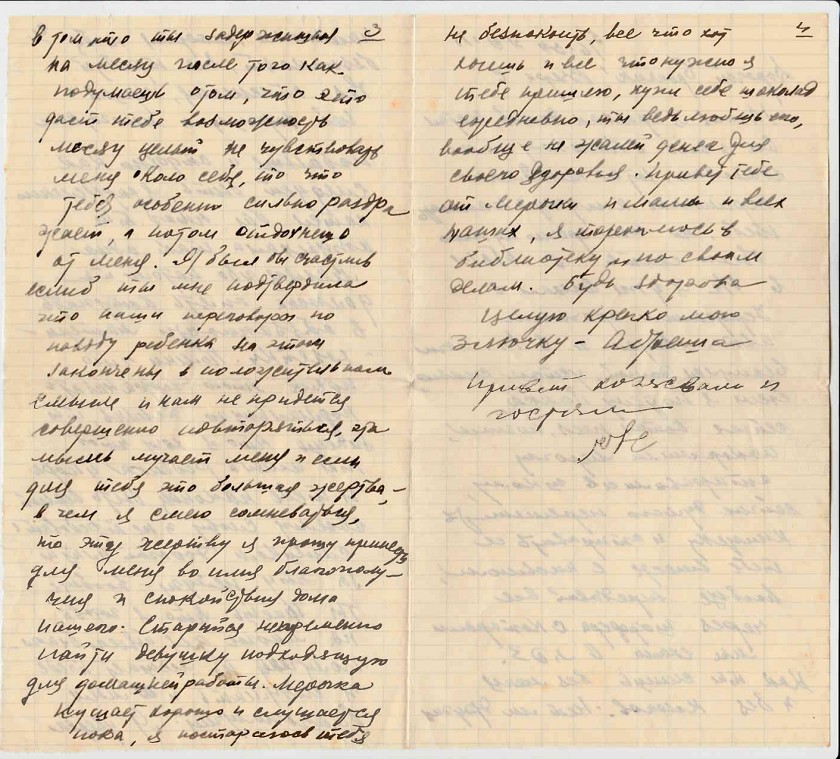 3
в том что ты задержишься
на месяц после того как
подумаешь о том, что это
даст тебе возможность
месяц целый не чувствовать
меня около себя, то что
тебя особенно сильно раздра
жает, а потом отдохнешь
от меня. Я был бы счастлив
еслиб ты мне подтвердила
что наши переговоры по
поводу ребенка на этом
закончены в положительном
смысле и нам не придется
совершенно повторяться, эта
мысль мучает меня и если
для тебя это большая жертва, –
в чем я смею сомневаться,
то эту жертву я прошу принесть
для меня во имя благополу–
чия и спокойствия дома
нашего. Старайся непременно
найти девушку подходящую
для домашней работы. Мерочка
кушает хорошо и слушается
пока, я постараюсь тебя
4
не безпокоить, все что хот
кошь и все что нужно я
тебе пришлю, купи себе шоколад
ежедневно, ты ведь любишь его,
вообще не жалей денег для
своего здоровья. Привет тебе
от Мерочки и мамы и всех
наших, я тороплюсь в
библиотеку и по своим
делам. Будь здорова
Целую крепко мою
– Абраша
Привет хозяевам и
гостям